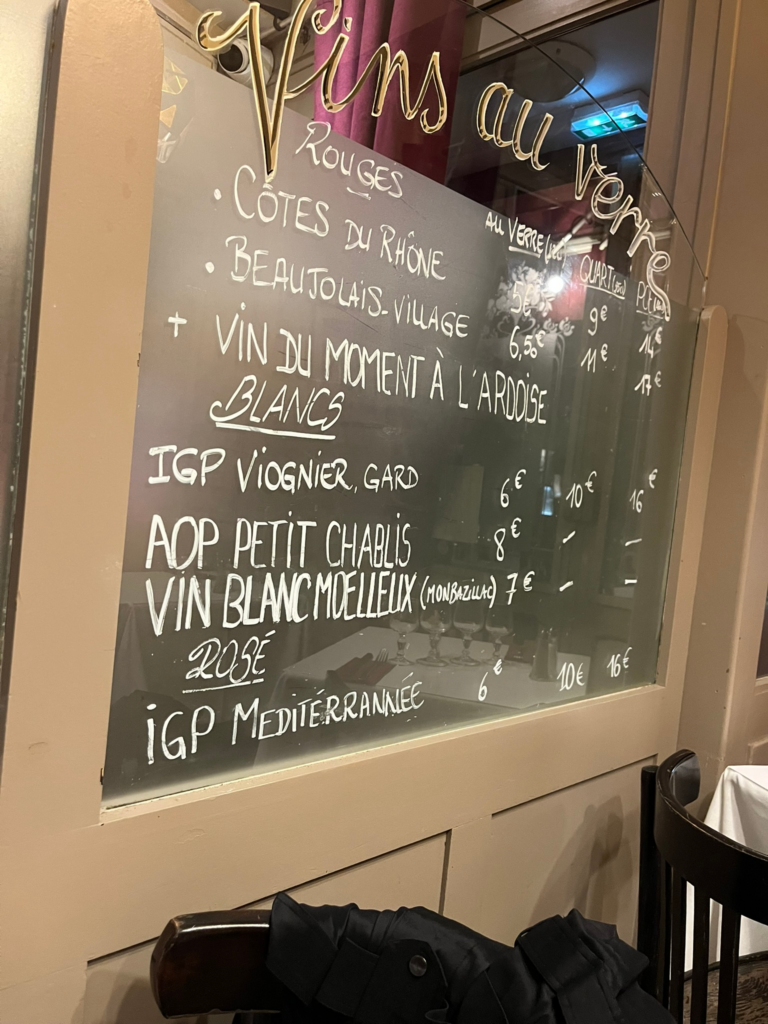 Vins au verre
ROUGES
AU VERRE QUART POT
• CÔTES DU RHÔNE 5€ 9€ 14€
• BEAUJOLAIS-VILLAGE 6,50€ 11€ 17€
+ VIN DU MOMENT À L'ARDOISE
BLANCS
IGP VIOGNIER, GARD 6€ 10€ 16€
AOP PETIT CHABLIS 8€ - -
VIN BLANC MOELLEUX (MONBAZILLAC) 7€ - -
ROSÉ
IGP MEDITÉRRANNÉE 6€ 10€ 16€